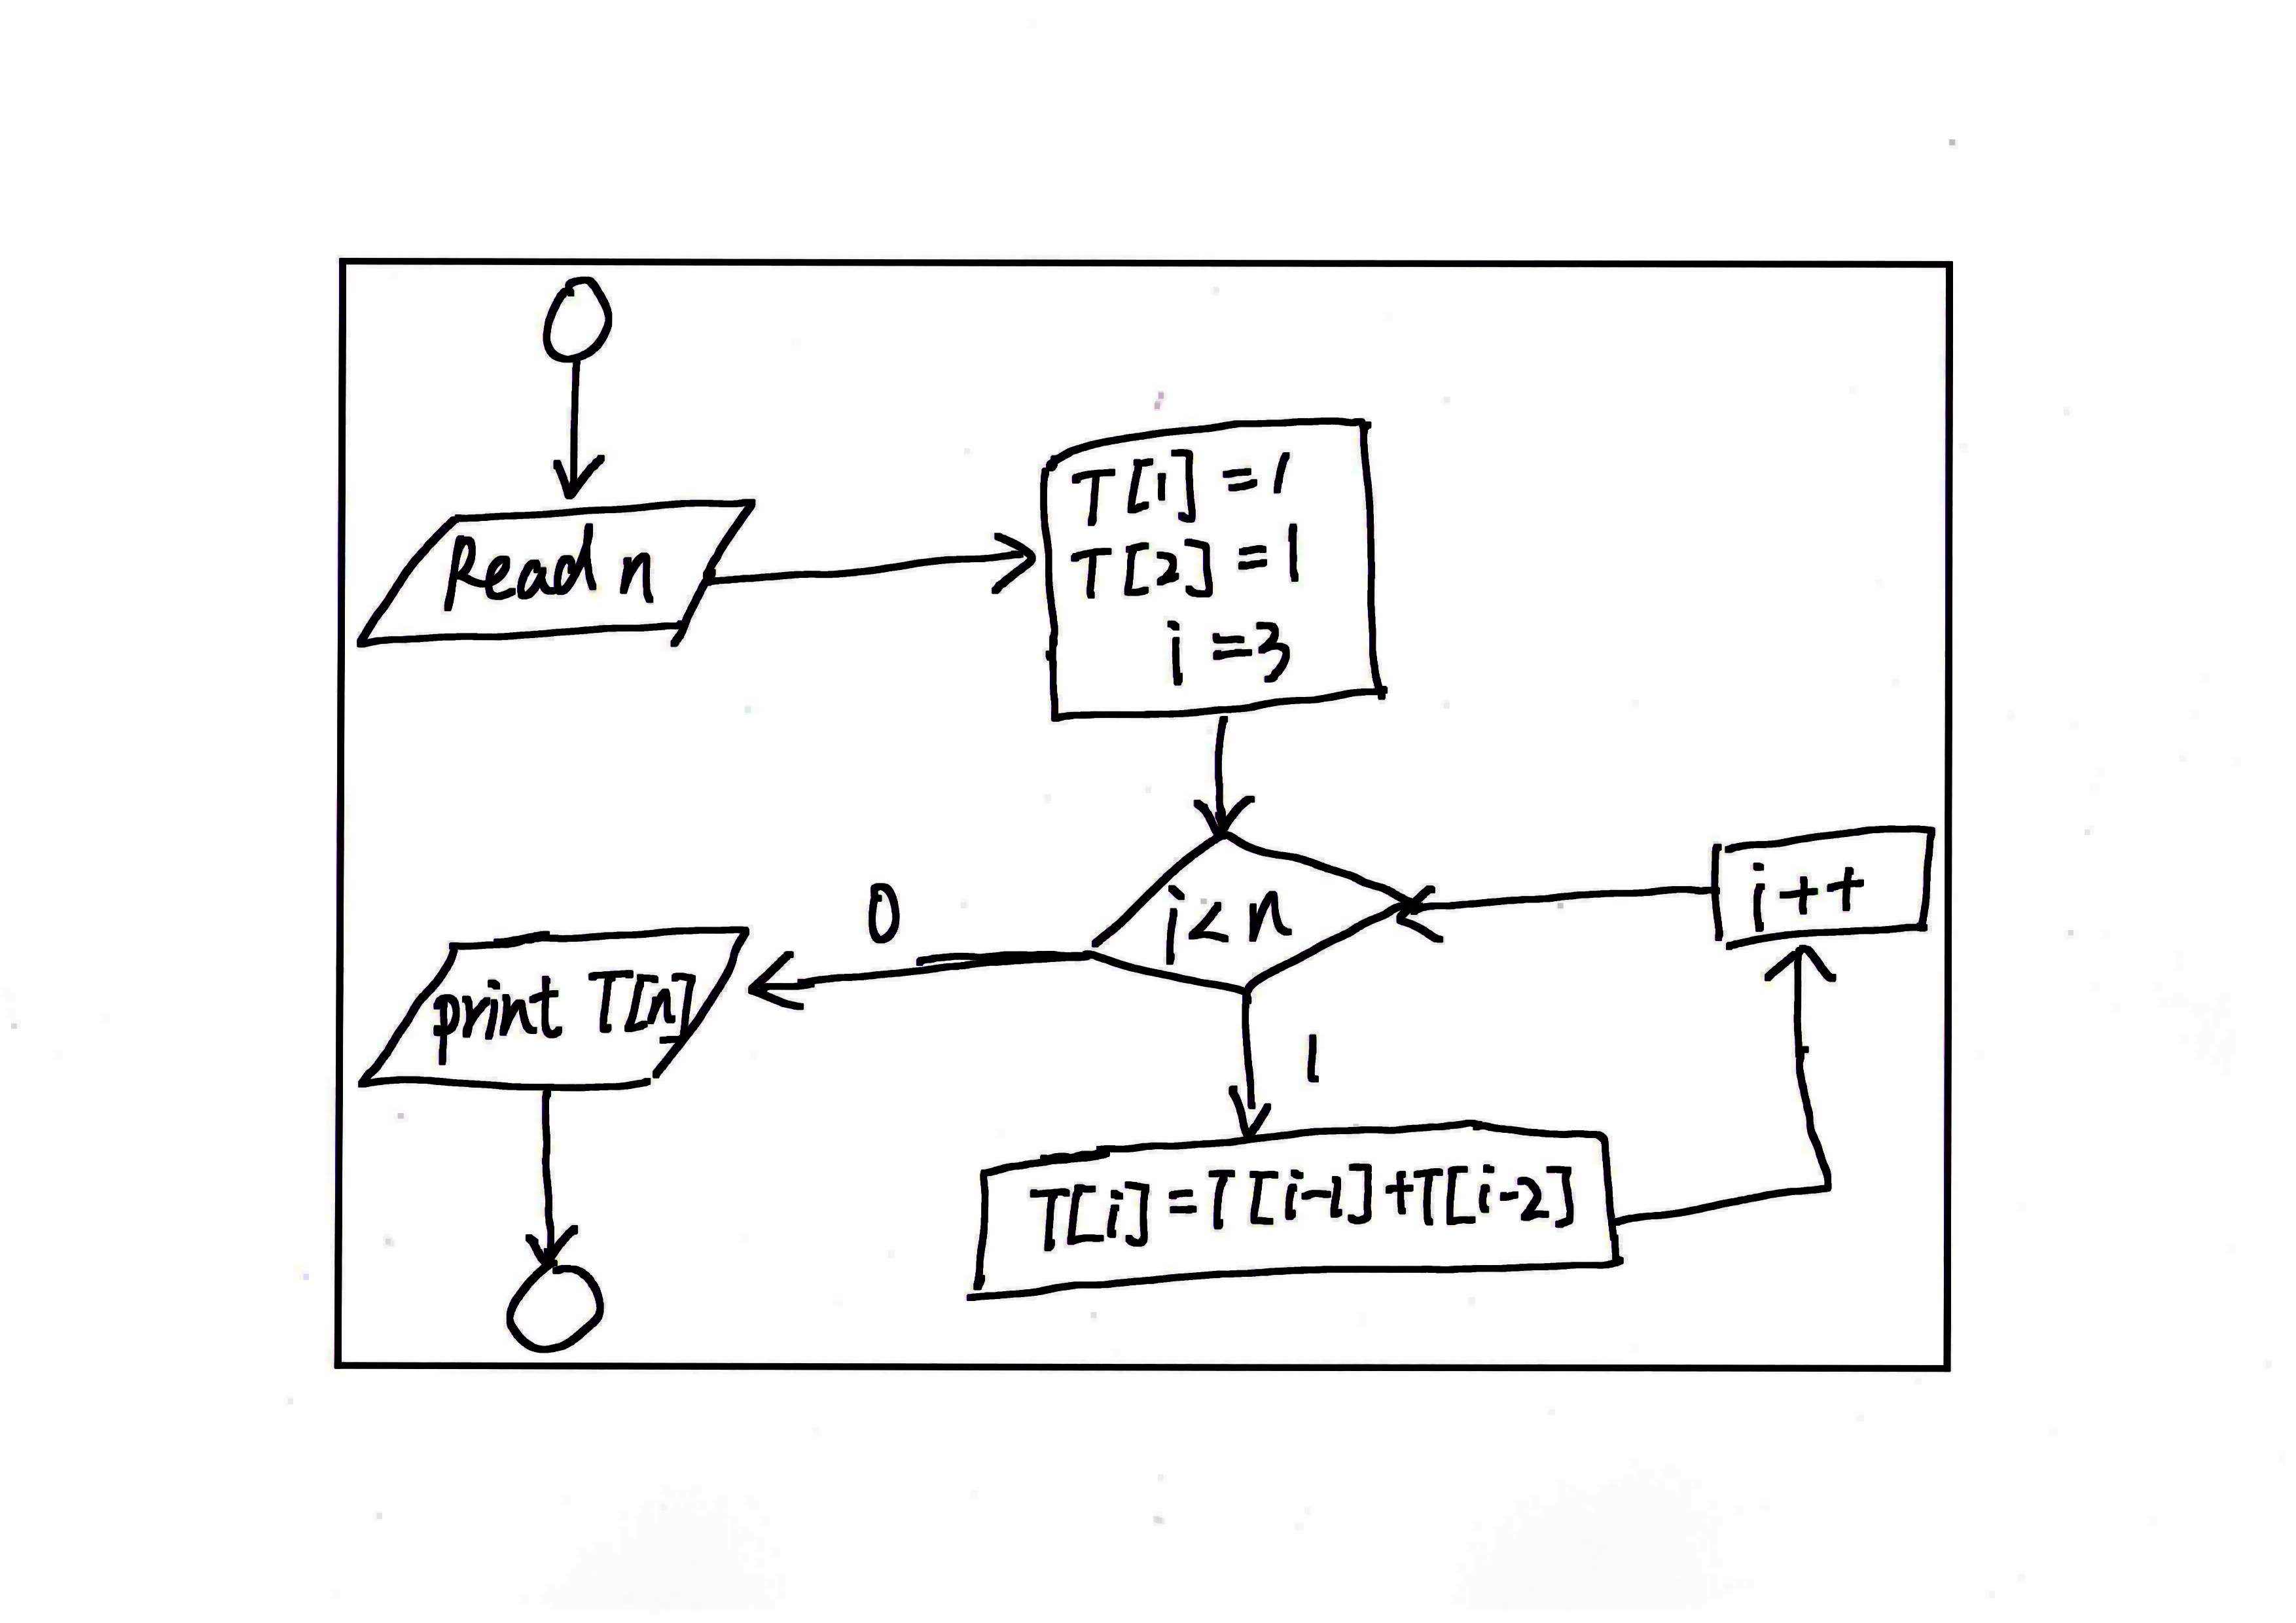 Read n
T[1] =1
T[2] =1
i =3
i < n
0
1
i++
print T[n]
T[i] =T[i-1]+T[i-2]